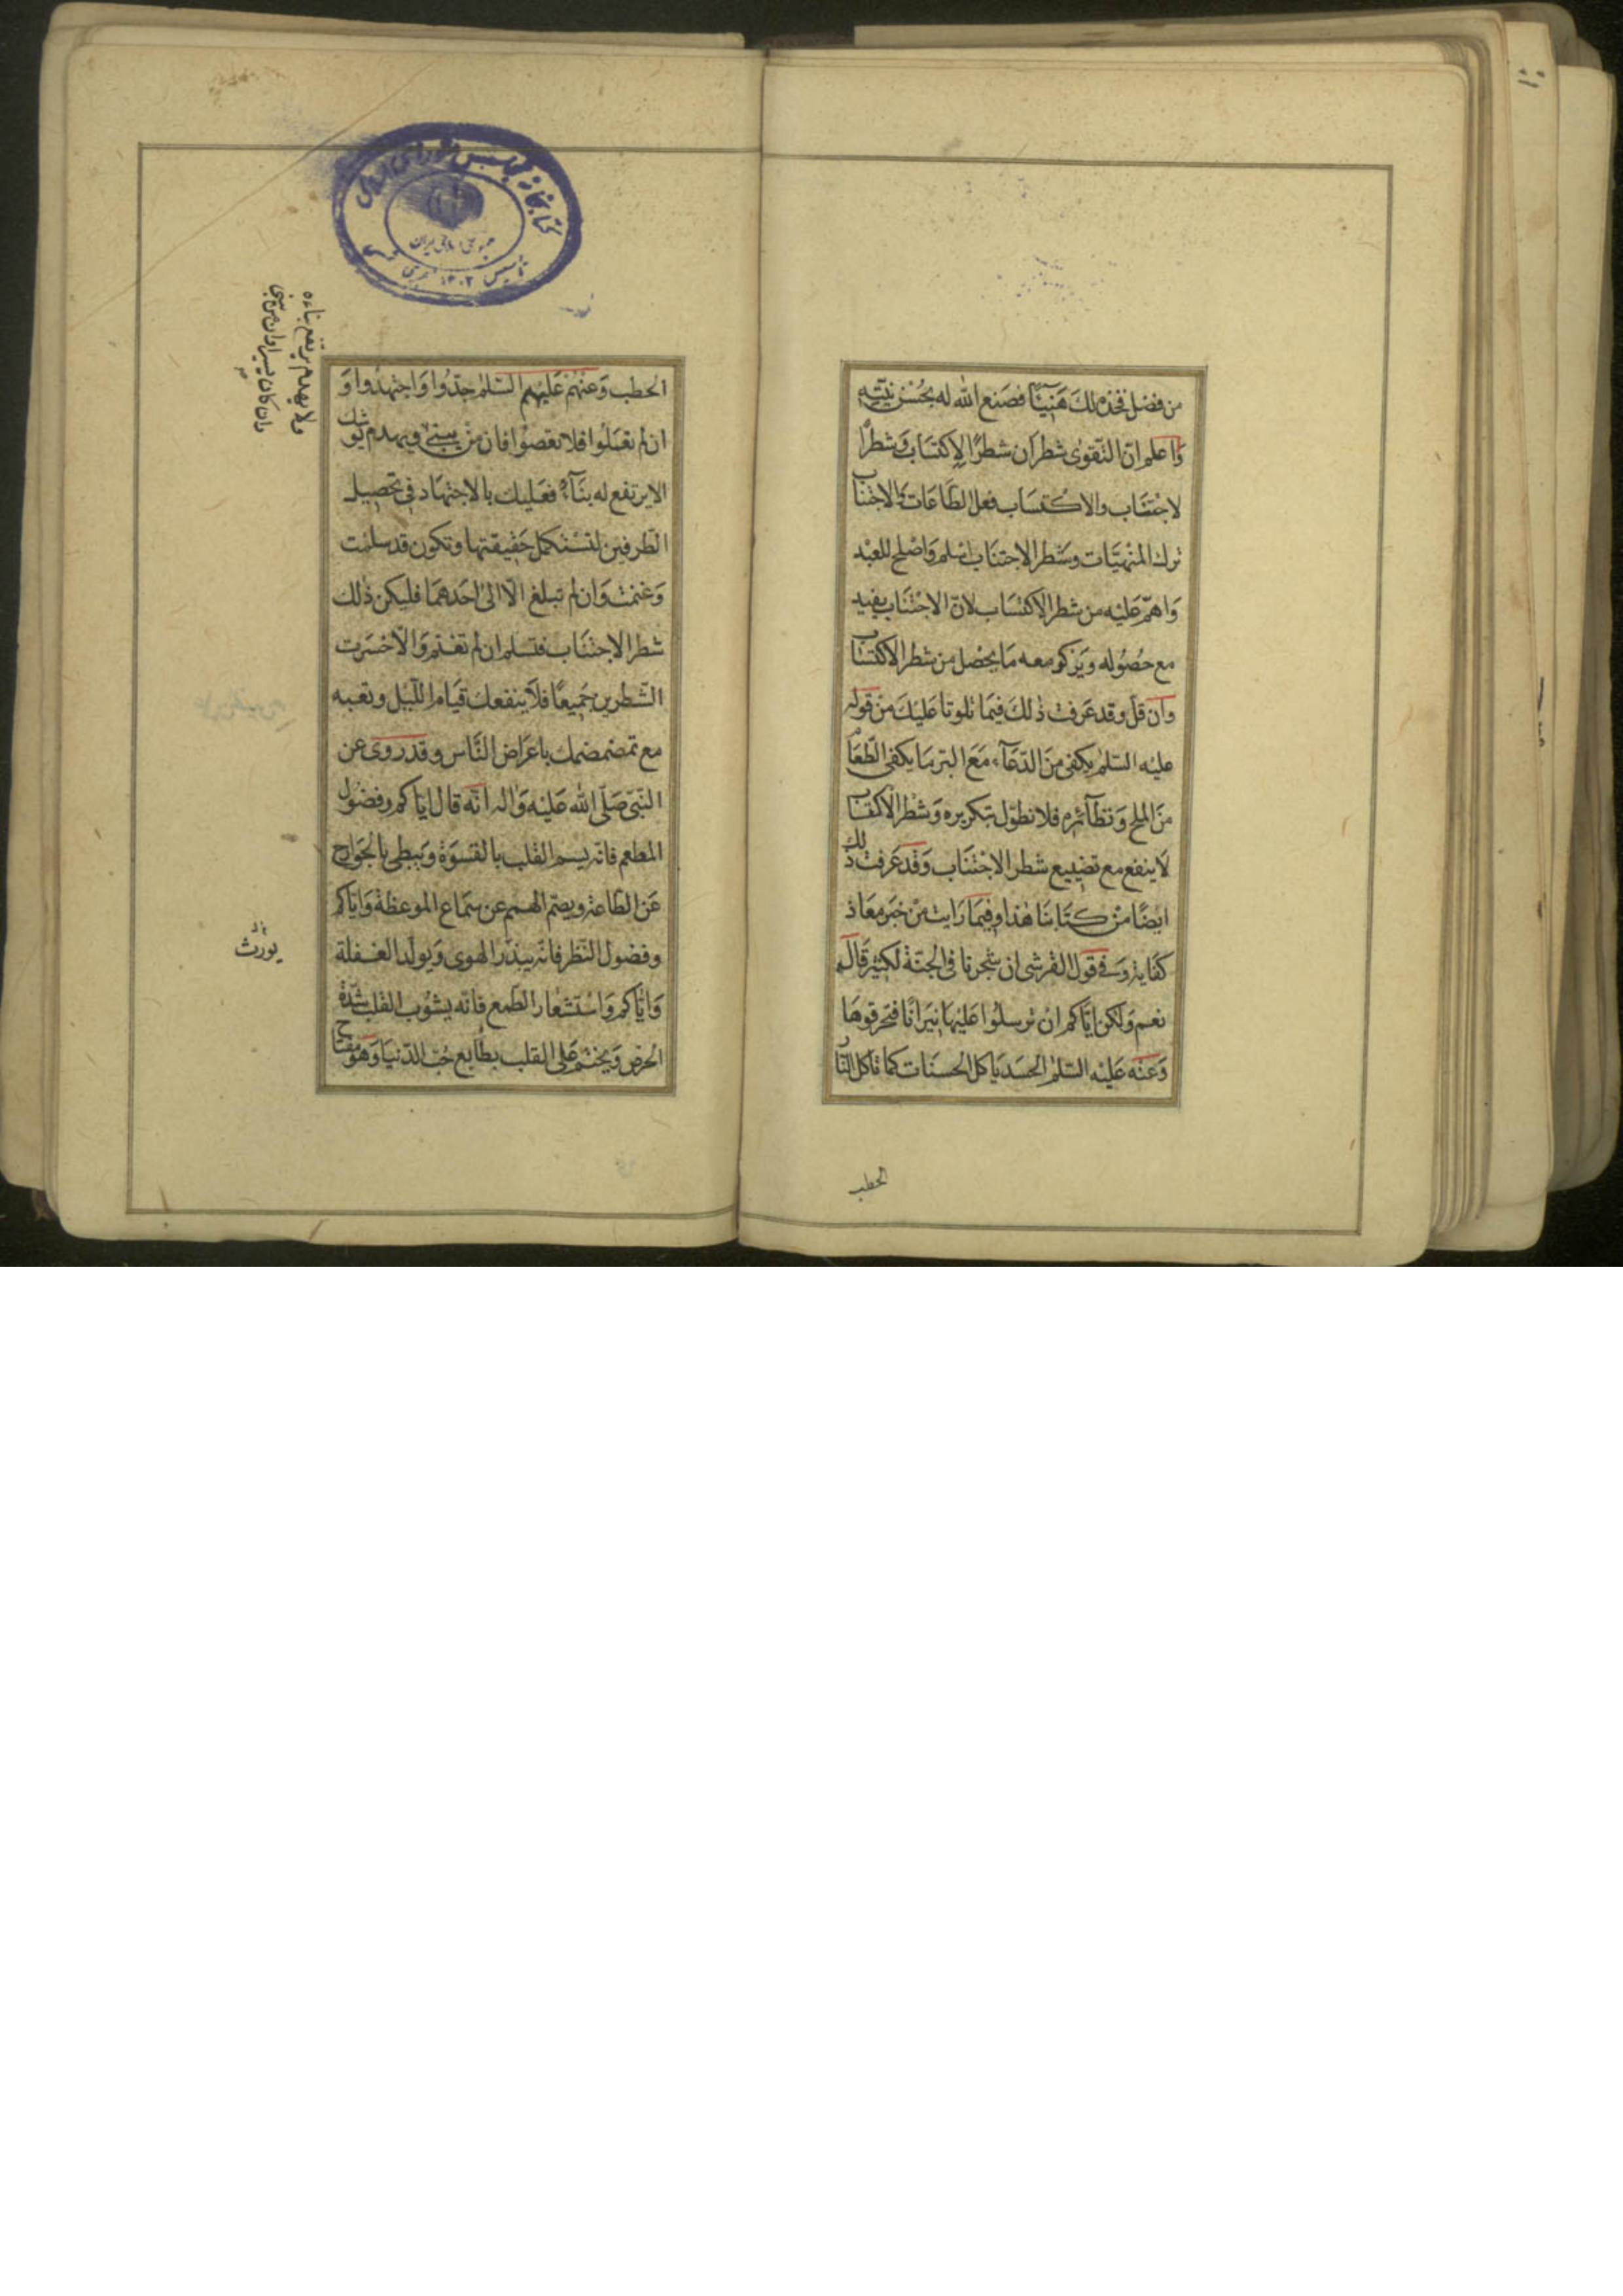 من فضل فخذه لك هَنِيئًا فصَنع الله له بحُسْن نيّته
وَاعلم انّ التّقوٰى شطرَان شطرُ الاِكتسَاب وَشطرُ ا
لاجْتنَاب والاكتسَاب فعل الطّاعَات وَالاجتناب
ترك المنْهيَّات وشَطر الاجتنَاب اسْلم وَاصْلح للعبْد
وَاهمّ عَليْه من شطر الاكتسَاب لانّ الاجتنَاب يفيد
مع حصُوله وَيَزكو معه مَا يحْصل من شطر الاكتسَاب
وَان قلّ وقد عَرفت ذٰلكَ فيمَا تلونا عَليْكَ منْ قوله
عليْه السّلم يكفى منَ الدّعَآء مَعَ البرّ مَا يكفى الطّعَام
منَ الملح وَنظآئره فلا نطوّل بتكريره وَشطر الاكتسَاب
لا ينفع مع تضييع شطر الاجْتنَاب وَقد عَرفت ذٰلك
ايضًا منْ كتَابنَا هٰذا وفيمَا رَايت منْ خبَر معَاذ
كفَاية وَفى قول القرشى ان شجرنا فى الجنّة لكثير قَالَ
نعم وَلكن ايّاكم انْ ترسلُوا عَليْهَا نيرَانًا فتحْرقوهَا
وَعنْه عَليْه السّلم الحسَد يَاكل الحسنَات كمَا تاكل النّار
الحطب
الحطب وَعنْهمْ عَليْهم السّلم جدّوا وَاجتهدُوا وَ
ان لم تعمَلُوا فلا تعصوْا فان منْ يبنى ويهدم يوشك
الا يرتفع له بنَآء فعَليك بالاجتهَاد فى تحصيل
الطّرفين لتسْتكمل حَقيقتهَا وتكون قد سلمت
وَغنمت وَان لم تبلغ الّا الىٰ احَدهمَا فليكن ذٰلك
شطر الاجتنَاب فتسلم ان لم تغنم وَالّا خسرت
الشّطرين جَميعًا فلا ينفعك قيَام اللّيل وتعبه
مع تمضمضك باعرَاض النّاس وقد روى عن
النّبىّ صَلّى الله عَليْه وَاله انّه قال ايّاكم وفضول
المطعم فانّه يسم القلب بالقسوَة وَيبطى بالجوَارح
عَن الطّاعة ويصمّ الهمم عن سمَاع الموعظة وَايّاكم
وفضول النّظر فانّه يبذر الهوى وَيولّد الغفلة
وَايّاكم وَاستشعَار الطّمع فانّه يشوب القلب شدّة
الحرص وَيختم عَلى القلب بطَابع حُبّ الدّنيَا وَهو مفتاح
ولا يهدم يرتفع بناءه
وان كان يسيرا وان من يبنى
يورث